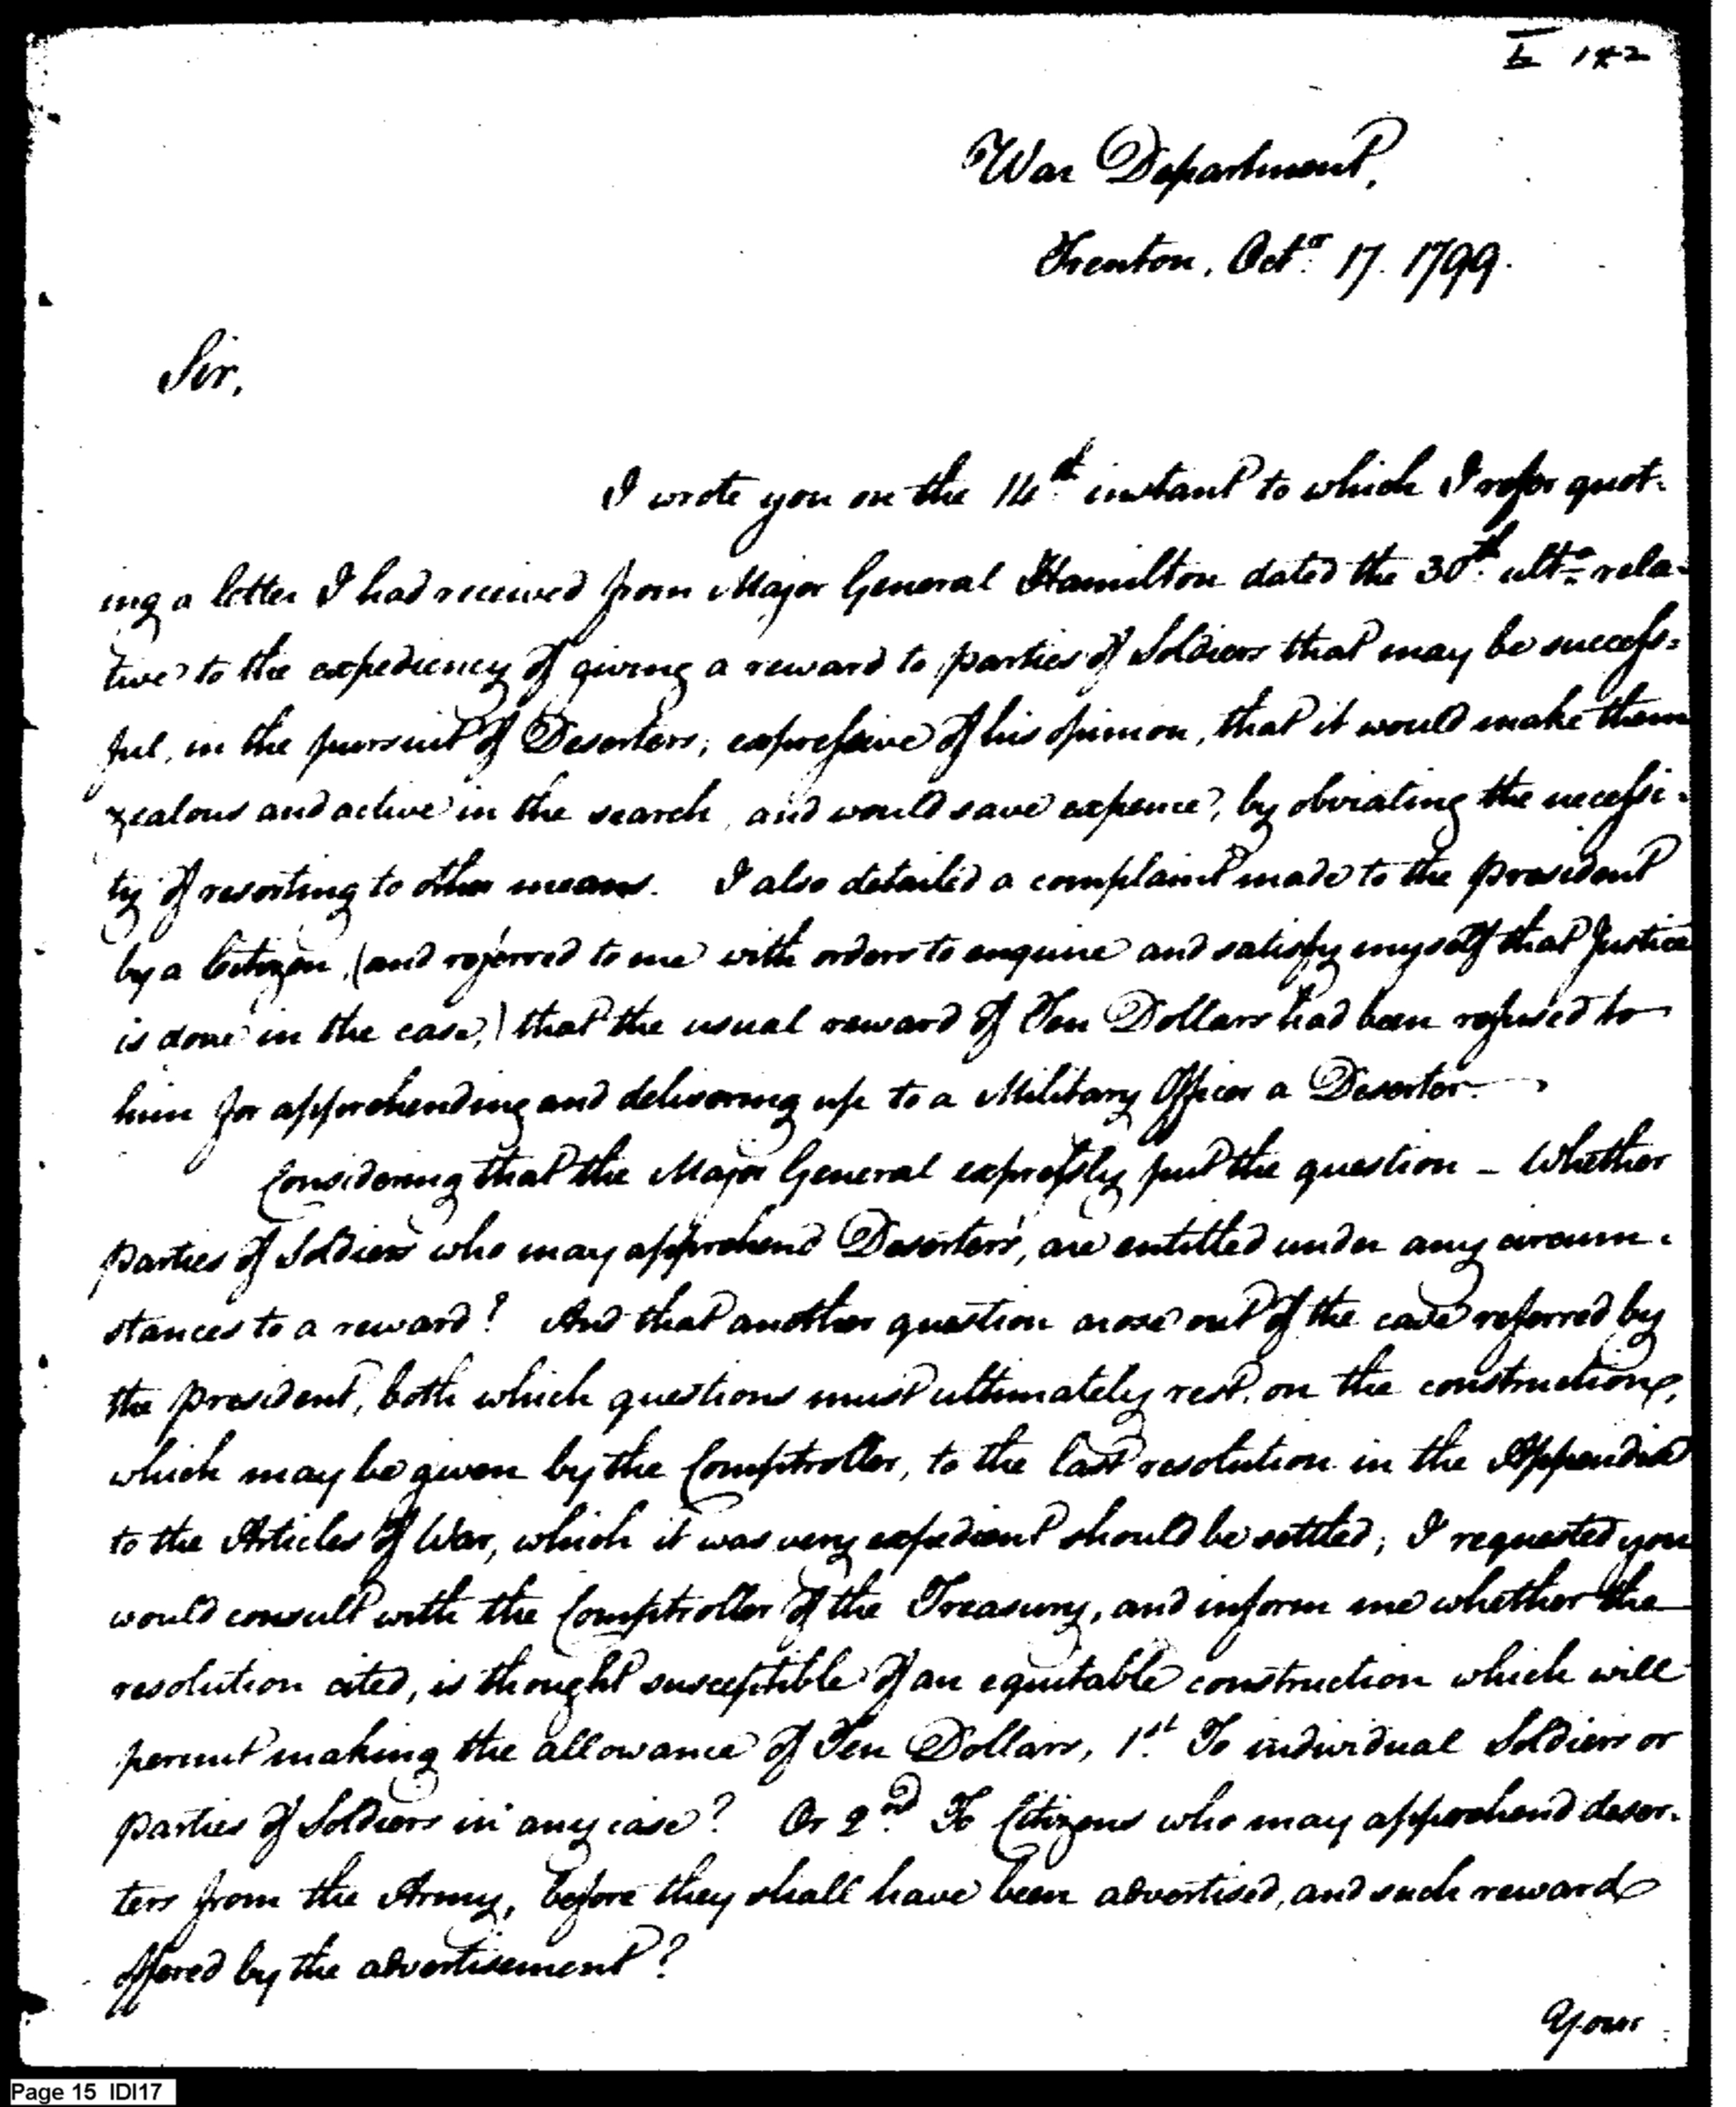 142
War Department,
Trenton, Octr. 17. 1799.
Sir,
I wrote you on the 14th. instant to which I refer quot-
ing a letter I had received from Major General Hamilton dated the 30th. ulto. rela-
tive to the expediency of giving a reward to parties of Soldiers that may be success-
ful, in the pursuit of Deserters; expressive of his opinion, that it would make them
zealous and active in the search, and would save expence, by obviating the necessi-
ty of resorting to other means. I also detailed a complaint made to the President
by a Citizen, (and referred to me with orders to enquire and satisfy myself that Justice
is done in the case,) that the usual reward of Ten Dollars had been refused to
him for apprehending and delivering up to a Military Officer a Deserter.
Considering that the Major General expressly put the question – Whether
parties of Soldiers who may apprehend Deserters, are entitled under any circum-
stances to a reward? And that another question arose out of the case referred by
the President, both which questions must ultimately rest, on the construction,
which may be given by the Comptroller, to the last resolution in the Appendix
to the Articles of War, which it was very expedient should be settled; I requested you
would consult with the Comptroller of the Treasury, and inform me whether the
resolution cited, is thought susceptible of an equitable construction which will
permit making the allowance of Ten Dollars, 1st. To individual Soldiers or
parties of Soldiers in any case? Or 2nd. To Citizens who may apprehend deser-
ters from the Army, before they shall have been advertised, and such reward
offered by the advertisement?
Your
Page 15 IDI17